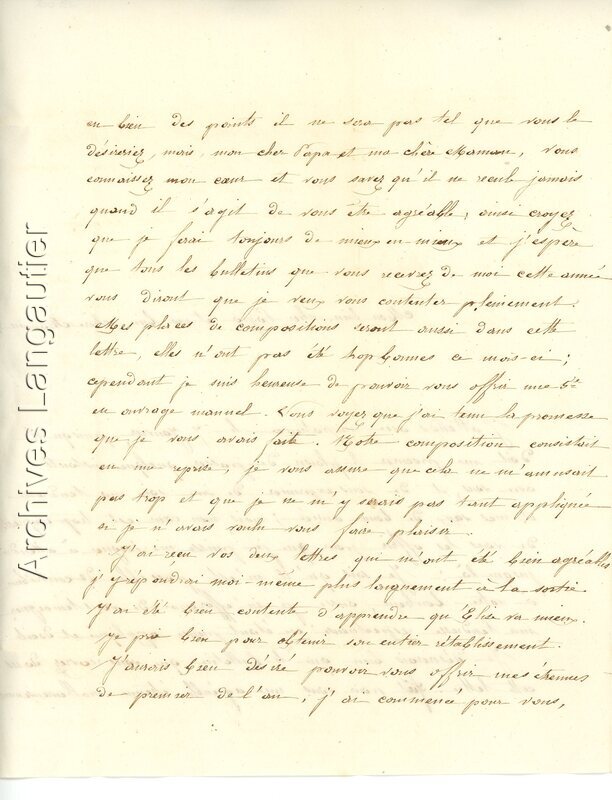 en bien des points il ne sera pas tel que vous le
désireriez, mais, mon cher Papa et ma chère Maman, vous
connaissez mon cœur et vous savez qu'il ne recule jamais
quand il s'agit de vous être agréable; ainsi croyez
que je ferai toujours de mieux en mieux et j'espère
que tous les bulletins que vous recevrez de moi cette année
vous diront que je veux vous contenter pleinement.
Mes places de compositions seront aussi dans cette
lettre, elles n'ont pas été trop bonnes ce mois-ci;
cependant je suis heureuse de pouvoir vous offrir une 5e
en ouvrage manuel. Vous voyez que j'ai tenu la promesse
que je vous avais faite. Notre composition consistait
en une reprise, je vous assure que cela ne m'amusait
pas trop et que je ne m'y serais pas tant appliquée
si je n'avais voulu vous faire plaisir.
J'ai reçu vos deux lettres qui m'ont été bien agréables
j'y répondrai moi-même plus longuement à la sortie.
J'ai été bien contente d'apprendre qu'Élise va mieux.
Je prie bien pour obtenir son entier rétablissement.
J'aurais bien désiré pouvoir vous offrir mes étrennes
de premier de l'an, j'ai commencé pour vous,
Archives Langautier